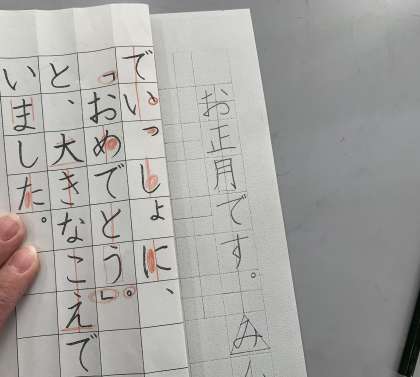 お正月です。み
でいっしょに、
「おめでとう。」
と、大きなこえで
いました。